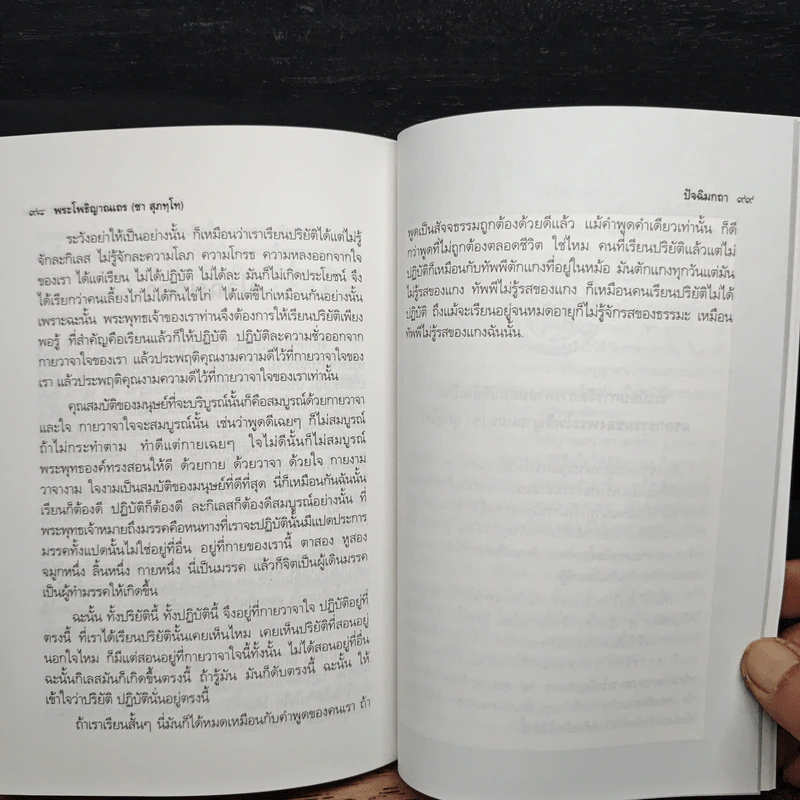 ๙๘ พระโพธิญาณเถร (ชา สุภทฺโท)
ระวังอย่าให้เป็นอย่างนั้น ก็เหมือนว่าเราเรียนปริยัติได้แต่ไม่รู้
จักละกิเลส ไม่รู้จักละความโลภ ความโกรธ ความหลงออกจากใจ
ของเรา ได้แต่เรียน ไม่ได้ปฏิบัติ ไม่ได้ละ มันก็ไม่เกิดประโยชน์ จึง
ได้เรียกว่าคนเลี้ยงไก่ไม่ได้กินไข่ไก่ ได้แต่ขี้ไก่เหมือนกันอย่างนั้น
เพราะฉะนั้น พระพุทธเจ้าของเราท่านจึงต้องการให้เรียนปริยัติเพียง
พอรู้ ที่สำคัญคือเรียนแล้วก็ให้ปฏิบัติ ปฏิบัติละความชั่วออกจาก
กายวาจาใจของเรา แล้วประพฤติคุณงามความดีไว้ที่กายวาจาใจของ
เรา แล้วประพฤติคุณงามความดีไว้ที่กายวาจาใจของเราเท่านั้น
คุณสมบัติของมนุษย์ที่จะบริบูรณ์นั้นก็คือสมบูรณ์ด้วยกายวาจา
และใจ กายวาจาใจจะสมบูรณ์นั้น เช่นว่าพูดดีเฉยๆ ก็ไม่สมบูรณ์
ถ้าไม่กระทำตาม ทำดีแต่กายเฉยๆ ใจไม่ดีนั้นก็ไม่สมบูรณ์
พระพุทธองค์ทรงสอนให้ดี ด้วยกาย ด้วยวาจา ด้วยใจ กายงาม
วาจางาม ใจงามเป็นสมบัติของมนุษย์ที่ดีที่สุด นี่ก็เหมือนกันฉันนั้น
เรียนก็ต้องดี ปฏิบัติก็ต้องดี ละกิเลสก็ต้องดีสมบูรณ์อย่างนั้น ที่
พระพุทธเจ้าหมายถึงมรรคคือหนทางที่เราจะปฏิบัตินั้นมีแปดประการ
มรรคทั้งแปดนั้นไม่ใช่อยู่ที่อื่น อยู่ที่กายของเรานี้ ตาสอง หูสอง
จมูกหนึ่ง ลิ้นหนึ่ง กายหนึ่ง นี่เป็นมรรค แล้วก็จิตเป็นผู้เดินมรรค
เป็นผู้ทำมรรคให้เกิดขึ้น
ฉะนั้น ทั้งปริยัตินี้ ทั้งปฏิบัตินี้ จึงอยู่ที่กายวาจาใจ ปฏิบัติอยู่ที่
ตรงนี้ ที่เราได้เรียนปริยัตินั้นเคยเห็นไหม เคยเห็นปริยัติที่สอนอยู่
นอกใจไหม ก็มีแต่สอนอยู่ที่กายวาจาใจนี้ทั้งนั้น ไม่ได้สอนอยู่ที่อื่น
ฉะนั้นกิเลสมันก็เกิดขึ้นตรงนี้ ถ้ารู้มัน มันก็ดับตรงนี้ ฉะนั้น ให้
เข้าใจว่าปริยัติ ปฏิบัตินั่นอยู่ตรงนี้
ถ้าเราเรียนสั้นๆ นี่มันก็ได้หมดเหมือนกับคำพูดของคนเรา ถ้า
ปัจฉิมกถา ๙๙
พูดเป็นสัจจธรรมถูกต้องด้วยดีแล้ว แม้คำพูดคำเดียวเท่านั้น ก็ดี
กว่าพูดที่ไม่ถูกต้องตลอดชีวิต ใช่ไหม คนที่เรียนปริยัติแล้วแต่ไม่
ปฏิบัติก็เหมือนกับทัพพีตักแกงที่อยู่ในหม้อ มันตักแกงทุกวันแต่มัน
ไม่รู้รสของแกง ทัพพีไม่รู้รสของแกง ก็เหมือนคนเรียนปริยัติไม่ได้
ปฏิบัติ ถึงแม้จะเรียนอยู่จนหมดอายุก็ไม่รู้จักรสของธรรมะ เหมือน
ทัพพีไม่รู้รสของแกงฉันนั้น.